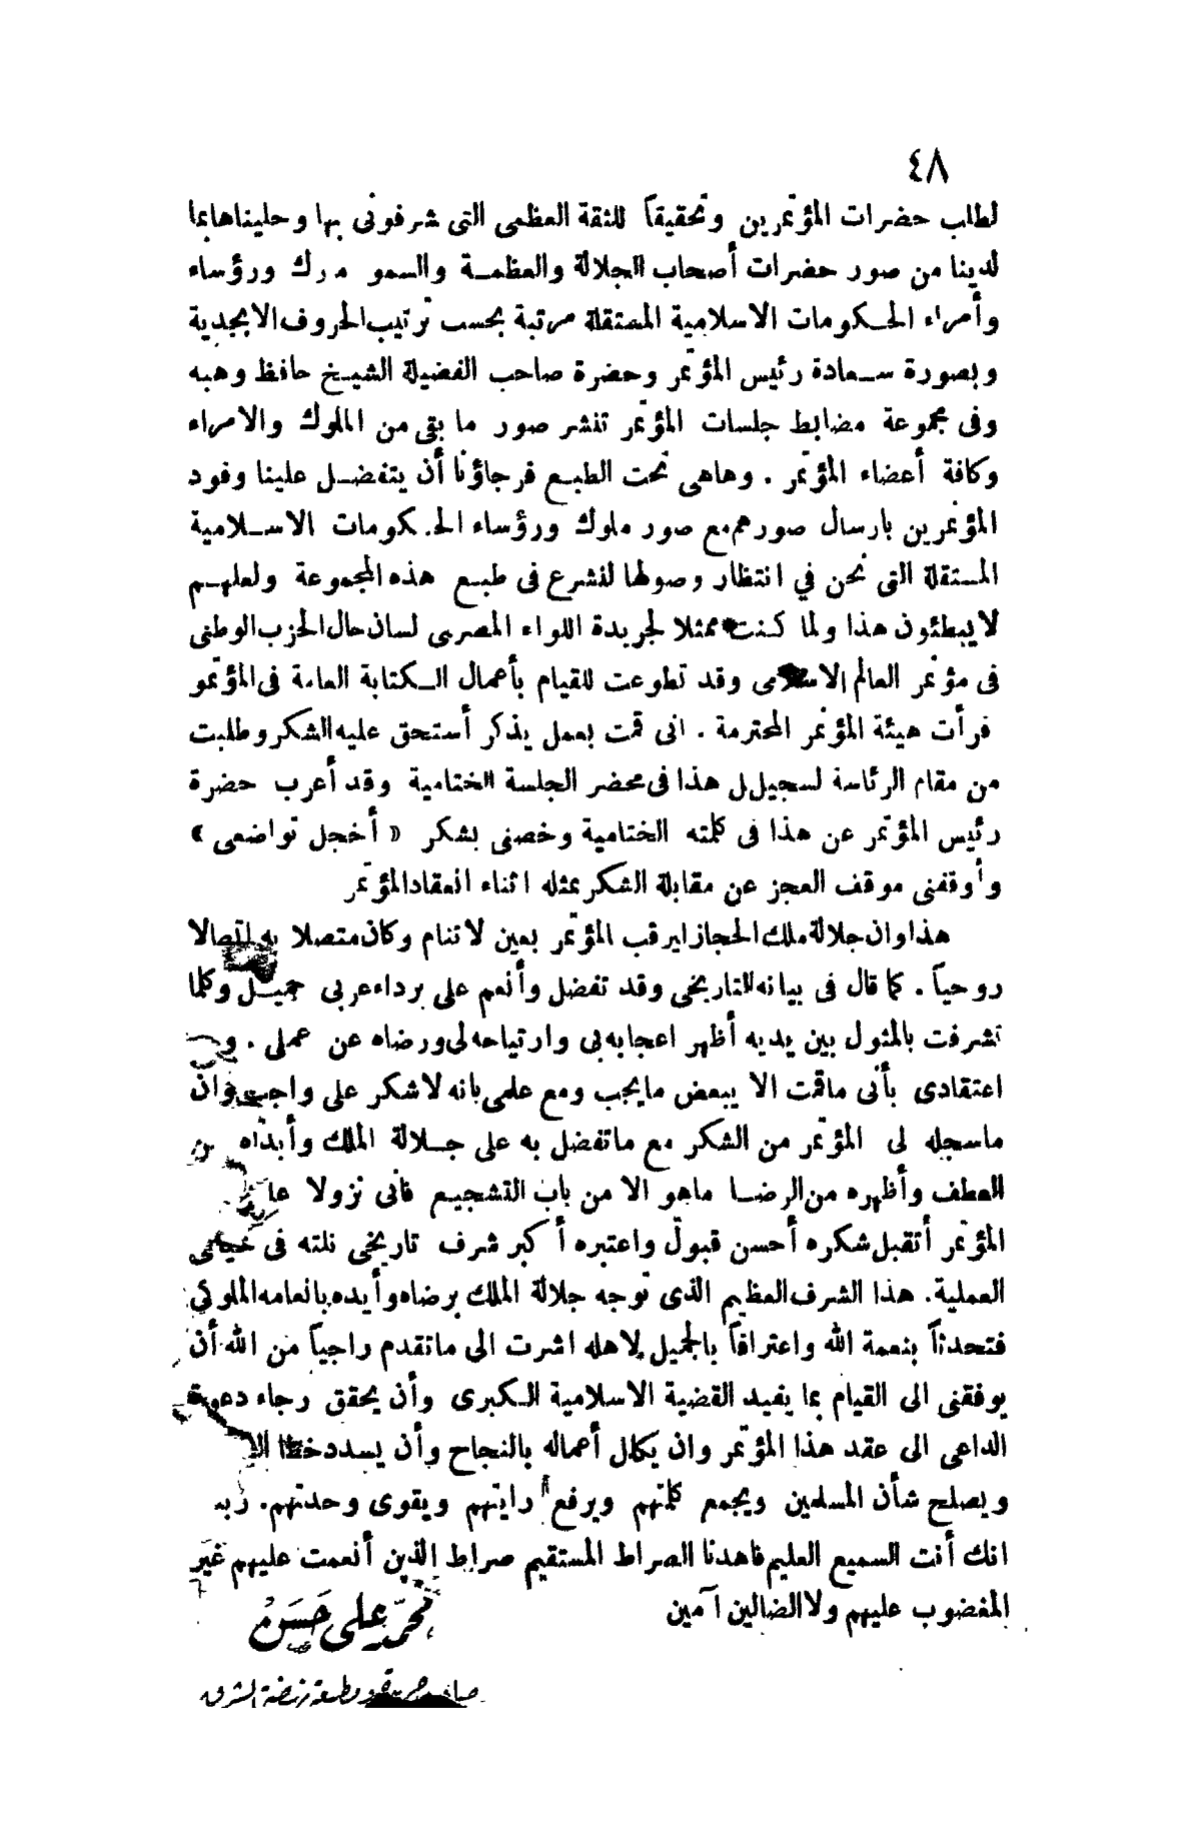 ٤٨
لطلب حضرات المؤتمرين وتحقيقاً للثقة العظمى التى شرفونى بها وحليناها بما
لدينا من صور حضرات أصحاب الجلالة والعظمة والسمو ورؤساء
وأمراء الحكومات الاسلامية المستقلة مرتبة بحسب ترتيب الحروف الابجدية
وبصورة سعادة رئيس المؤتمر وحضرة صاحب الفضيلة الشيخ حافظ وهبه
وفى مجموعة مضابط جلسات المؤتمر تنشر صور ما بقى من الملوك والامراء
وكافة أعضاء المؤتمر . وهاهى تحت الطبع فرجاؤنا أن يتفضل علينا وفود
المؤتمرين بارسال صورهم مع صور ملوك ورؤساء الحكومات الاسلامية
المستقلة التى نحن في انتظار وصولها لنشرع فى طبع هذه المجموعة ولعلهم
لا يبطئون هذا ولما كنت ممثلا لجريدة اللواء المصرى لسان حال الحزب الوطنى
فى مؤتمر العالم الاسلامى وقد تطوعت للقيام بأعمال الكتابة العامة فى المؤتمو
فرأت هيئة المؤتمر المحترمة . انى قمت بعمل يذكر أستحق عليه الشكر وطلبت
من مقام الرئاسة لسجيل ل هذا فى محضر الجلسة الختامية وقد أعرب حضرة
رئيس المؤتمر عن هذا فى كلمته الختامية وخصنى بشكر « أخجل تواضعى »
وأوقفنى موقف العجز عن مقابلة الشكر بمثله اثناء انعقاد المؤتمر
هذا وان جلالة ملك الحجاز ايرقب المؤتمر بعين لا تنام وكان متصلا به اتصالا
روحياً . كما قال فى بيانه التاريخى وقد تفضل وأنعم على برداء عربى جميل وكلما
تشرفت بالمثول بين يديه أظهر اعجابه بى وارتياحه لى ورضاه عن عملى . و
اعتقادى بأنى ماقمت الا ببعض مايجب ومع علمى بانه لا شكر على واجب وان
ماسجله لى المؤتمر من الشكر مع ماتفضل به على جلالة الملك وأبداه من
العطف وأظهره من الرضا ماهو الا من باب التشجيع فانى نزولا
المؤتمر أتقبل شكره أحسن قبول واعتبره أكبر شرف تاريخى نلته فى حياتى
العملية. هذا الشرف العظيم الذى توجه جلالة الملك برضاه وأيده بانعامه الملوكى
فتحدثاً بنعمة الله واعترافاً بالجميل لاهله اشرت الى ماتقدم راجياً من الله أن
يوفقنى الى القيام بما يفيد القضية الاسلامية الكبرى وأن يحقق رجاء دعوة
الداعى الى عقد هذا المؤتمر وان يكلل أعماله بالنجاح وأن يسدد خطا
ويصلح شأن المسلمين ويجمع كلمتهم ويرفع رايتهم ويقوى وحدتهم.
انك أنت السميع العليم فاهدنا الصراط المستقيم صراط الذين أنعمت عليهم غير
المغضوب عليهم ولا الضالين آمين
محمد على حسن
صاحب جريدة ومطبعة نهضة الشرق